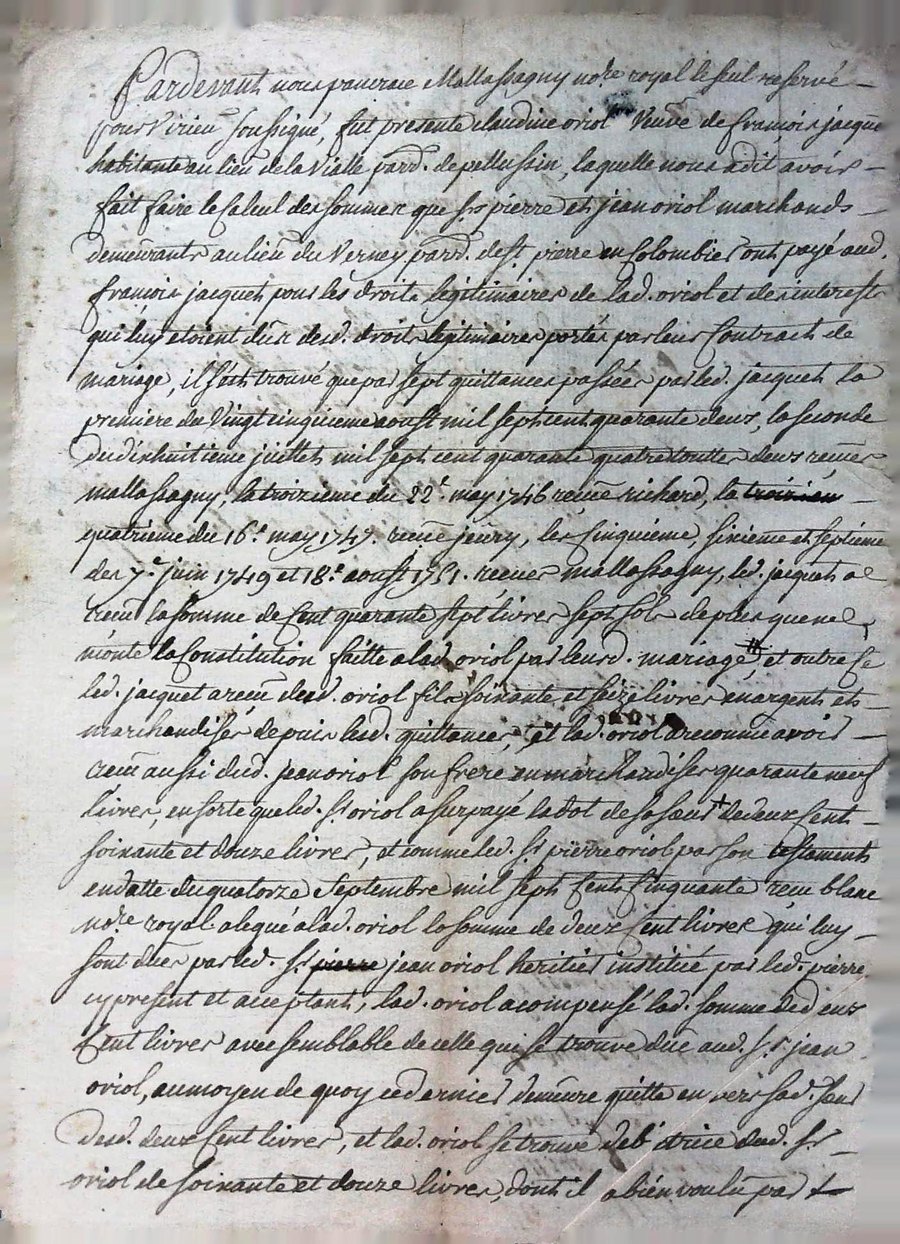 Pardevant nous pancrace Mallassagny no.re royal le seul reservé
pour Virieu soussigné, fut presente claudine oriol veuve de francois jacquet
habitante au lieu de la Vialle pard. de pellussin, laquelle nous a dit avoir
fait faire le Calcul des sommes que srs pierre et jean oriol marchands
demeurants au lieu du Verney pard. de st. pierre en Colombier ont payé aud.
francois jacquet pour les droits legitimaires de lad. oriol et des interests
qui luy etoient dus desd. droits legitimaires portés par leur Contract de
mariage, il s'est trouvé que par sept quittances passées par led. jacquet la
premiere du Vingt cinquieme aoust mil sept cent quarante deux, la seconde
du dixhuitieme juillet mil sept cent quarante quatre toutte deux recues
mallassagny, la troizieme du 22e. may 1746 recue richard, la troizieme
quatrieme du 16e. may 1747. recue jeury, les Cinquieme, sixieme et septieme
des 7e. juin 1749 et 18e. aoust 1751. recues mallassagny, led. jacquet a
receu la somme de Cent quarante sept livres sept sols de plus que ne
monte la Constitution faitte a lad. oriol par leurd. mariage, et outre ce
led. jacquet a receu desd. oriol fils soixante et seize livres en argent et
marchandises depuis lesd. quittances, et lad. oriol a reconnu avoir
receu aussi dud. jean oriol son frere en marchandises quarante neuf
livres, en sorte que led. sr. oriol a surpayé la dot de sa sœur + de deux Cent
soixante et douze livres, et comme led. sr. pierre oriol par son testament
en datte du quatorze septembre mil sept Cent Cinquante receu blanc
no.re royal a legué a lad. oriol la somme de deux Cent livres qui luy
sont dues par led. sr. pierre jean oriol heritier institué par led. pierre,
cy present et acceptant, lad. oriol a compensé lad. somme de deux
Cent livres avec semblable de celle qui se trouve due aud. sr. jean
oriol, au moyen de quoy ce dernier demeure quitte envers sad. sœur
desd. deux Cent livres, et lad. oriol se trouve debitrice dud. sr.
oriol de soixante et douze livres, dont il a bien voulu par +